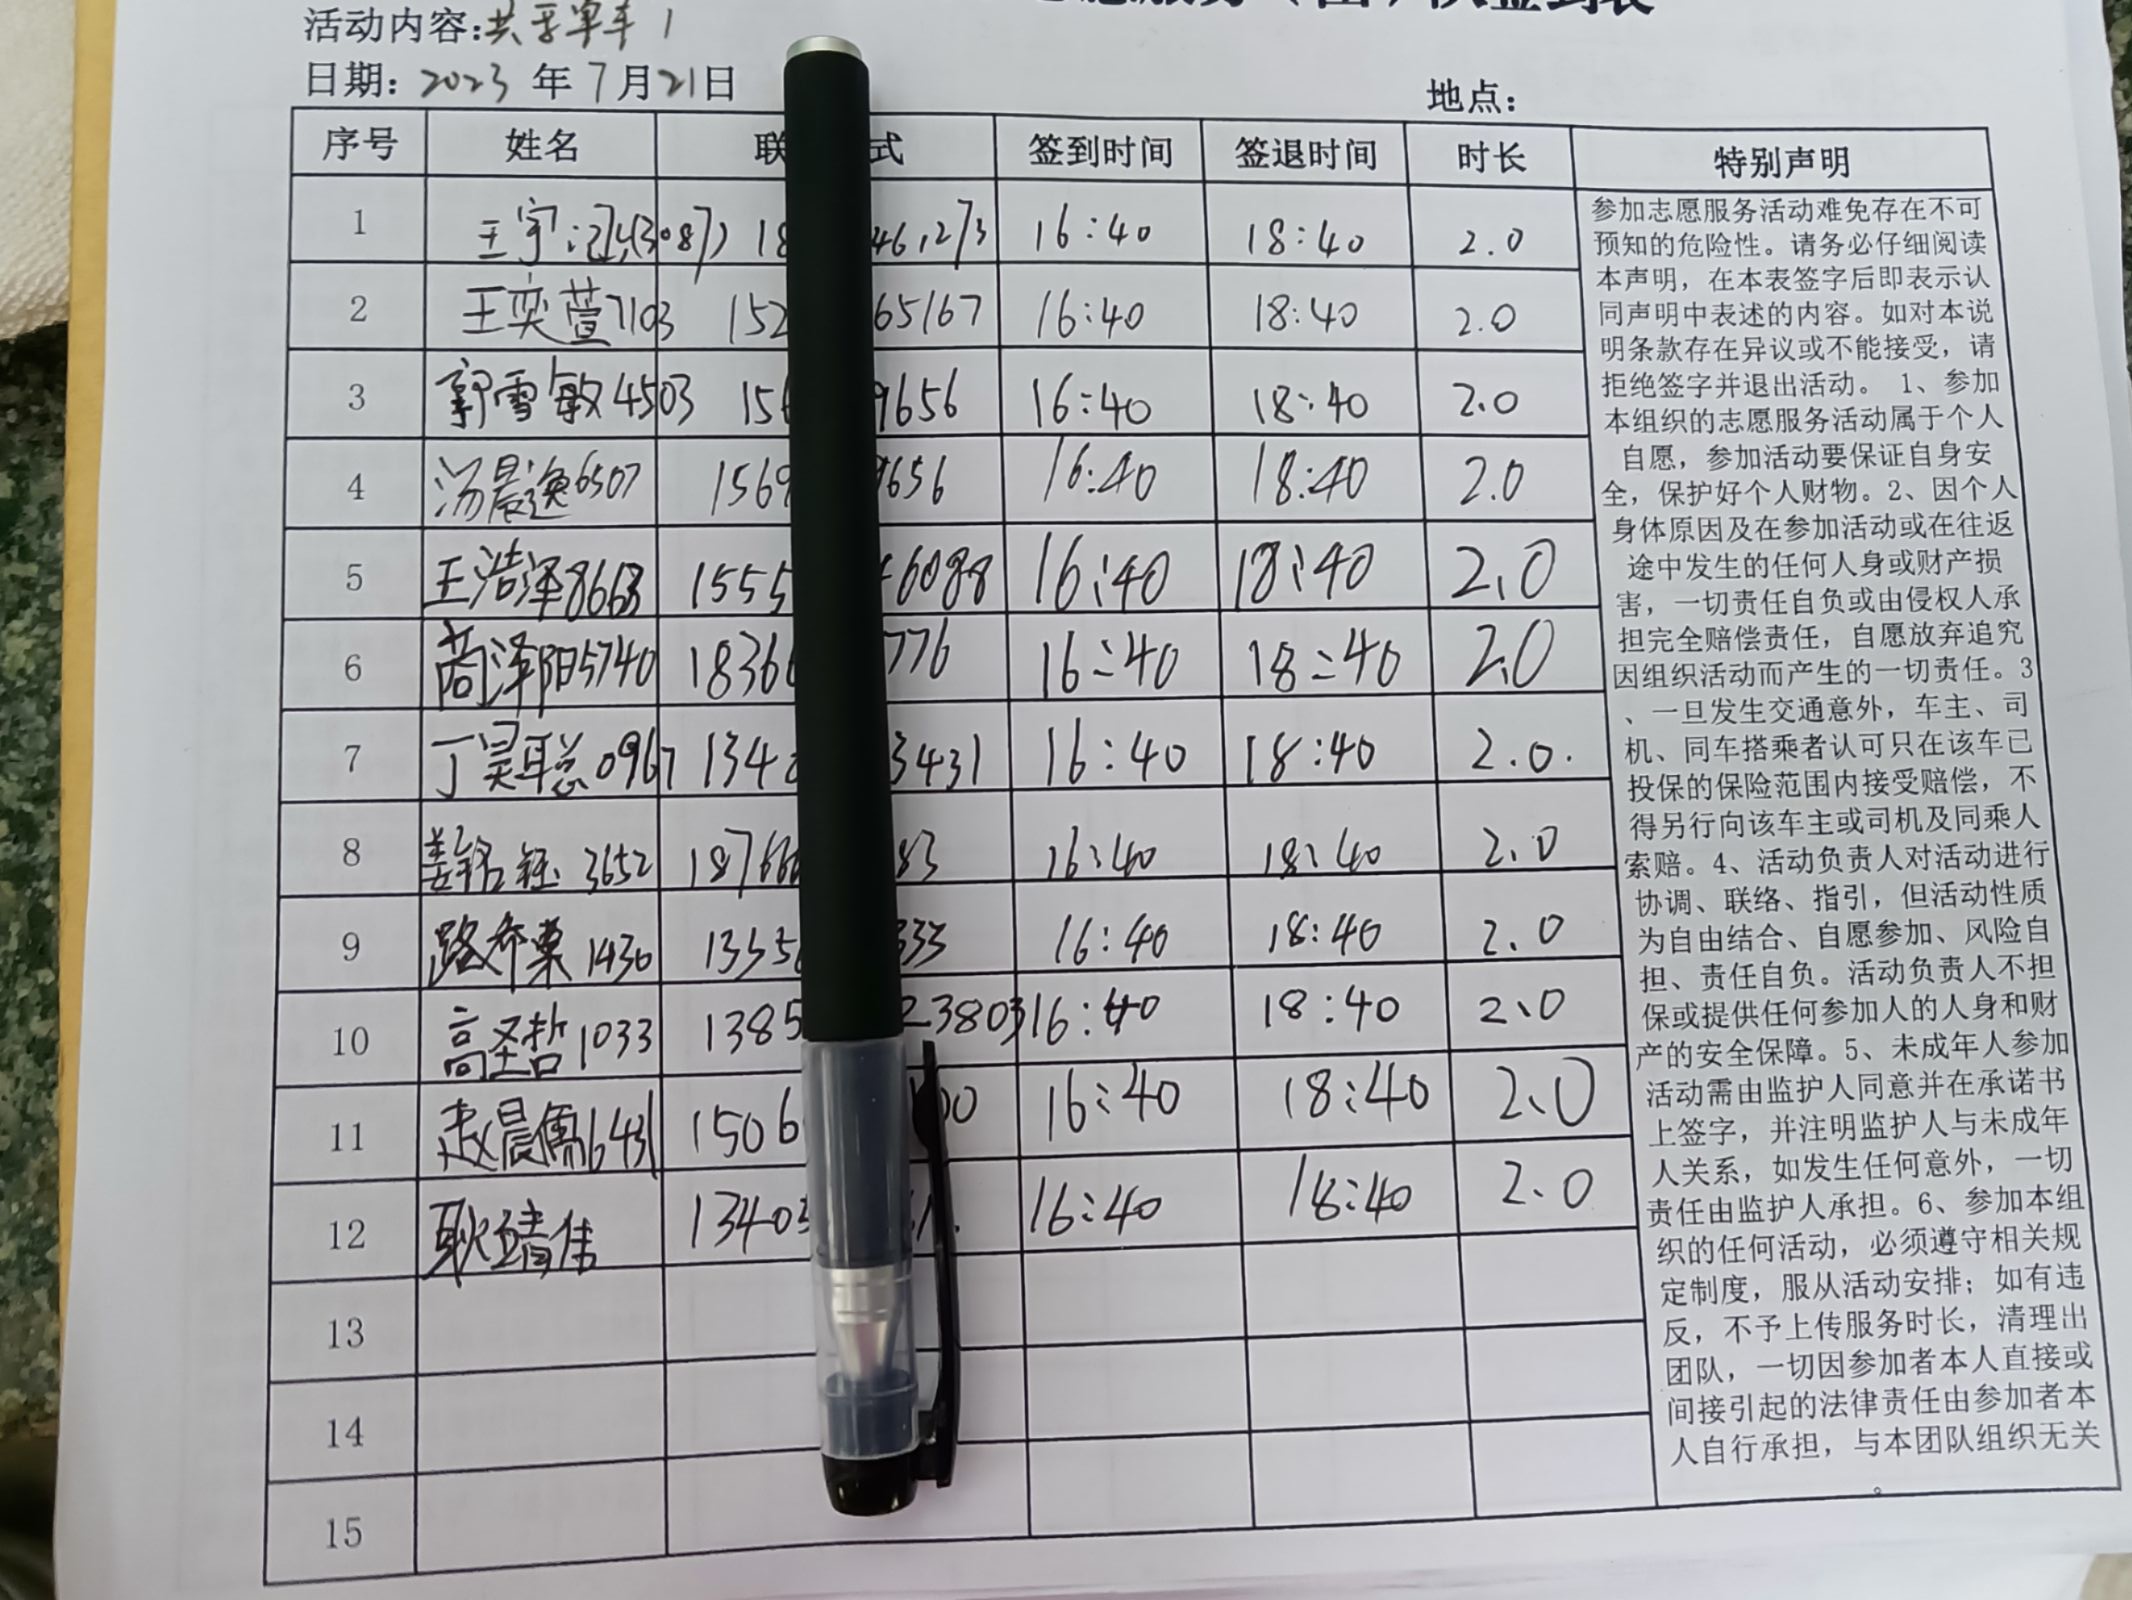 服务（团）队签到表
活动内容:共享单车1
日期: 2023 年 7月21日
地点:
序号 姓名 联 式 签到时间 签退时间 时长 特别声明
1 王宇 (3087) 18 461273 16:40 18:40 2.0
2 王奕萱7103 152 65167 16:40 18:40 2.0
3 郭雪敏4503 156 9656 16:40 18:40 2.0
4 汤晨逸6507 1569 9656 16:40 18:40 2.0
5 王浩泽8668 1555 6088 16:40 18:40 2.0
6 商泽阳5740 18366 776 16:40 18:40 2.0
7 丁昊聪0967 1348 3431 16:40 18:40 2.0.
8 姜铭钰 3652 18766 83 16:40 18:40 2.0
9 路希 1430 1335 333 16:40 18:40 2.0
10 高圣哲1033 1385 23803 16:40 18:40 2.0
11 赵晨儒6431 1506 00 16:40 18:40 2.0
12 耿靖佳 13403 16:40 18:40 2.0
13
14
15
参加志愿服务活动难免存在不可
预知的危险性。请务必仔细阅读
本声明，在本表签字后即表示认
同声明中表述的内容。如对本说
明条款存在异议或不能接受，请
拒绝签字并退出活动。 1、参加
本组织的志愿服务活动属于个人
自愿，参加活动要保证自身安
全，保护好个人财物。2、因个人
身体原因及在参加活动或在往返
途中发生的任何人身或财产损
害，一切责任自负或由侵权人承
担完全赔偿责任，自愿放弃追究
因组织活动而产生的一切责任。3
、一旦发生交通意外，车主、司
机、同车搭乘者认可只在该车已
投保的保险范围内接受赔偿，不
得另行向该车主或司机及同乘人
索赔。4、活动负责人对活动进行
协调、联络、指引，但活动性质
为自由结合、自愿参加、风险自
担、责任自负。活动负责人不担
保或提供任何参加人的人身和财
产的安全保障。5、未成年人参加
活动需由监护人同意并在承诺书
上签字，并注明监护人与未成年
人关系，如发生任何意外，一切
责任由监护人承担。6、参加本组
织的任何活动，必须遵守相关规
定制度，服从活动安排；如有违
反，不予上传服务时长，清理出
团队，一切因参加者本人直接或
间接引起的法律责任由参加者本
人自行承担，与本团队组织无关
。